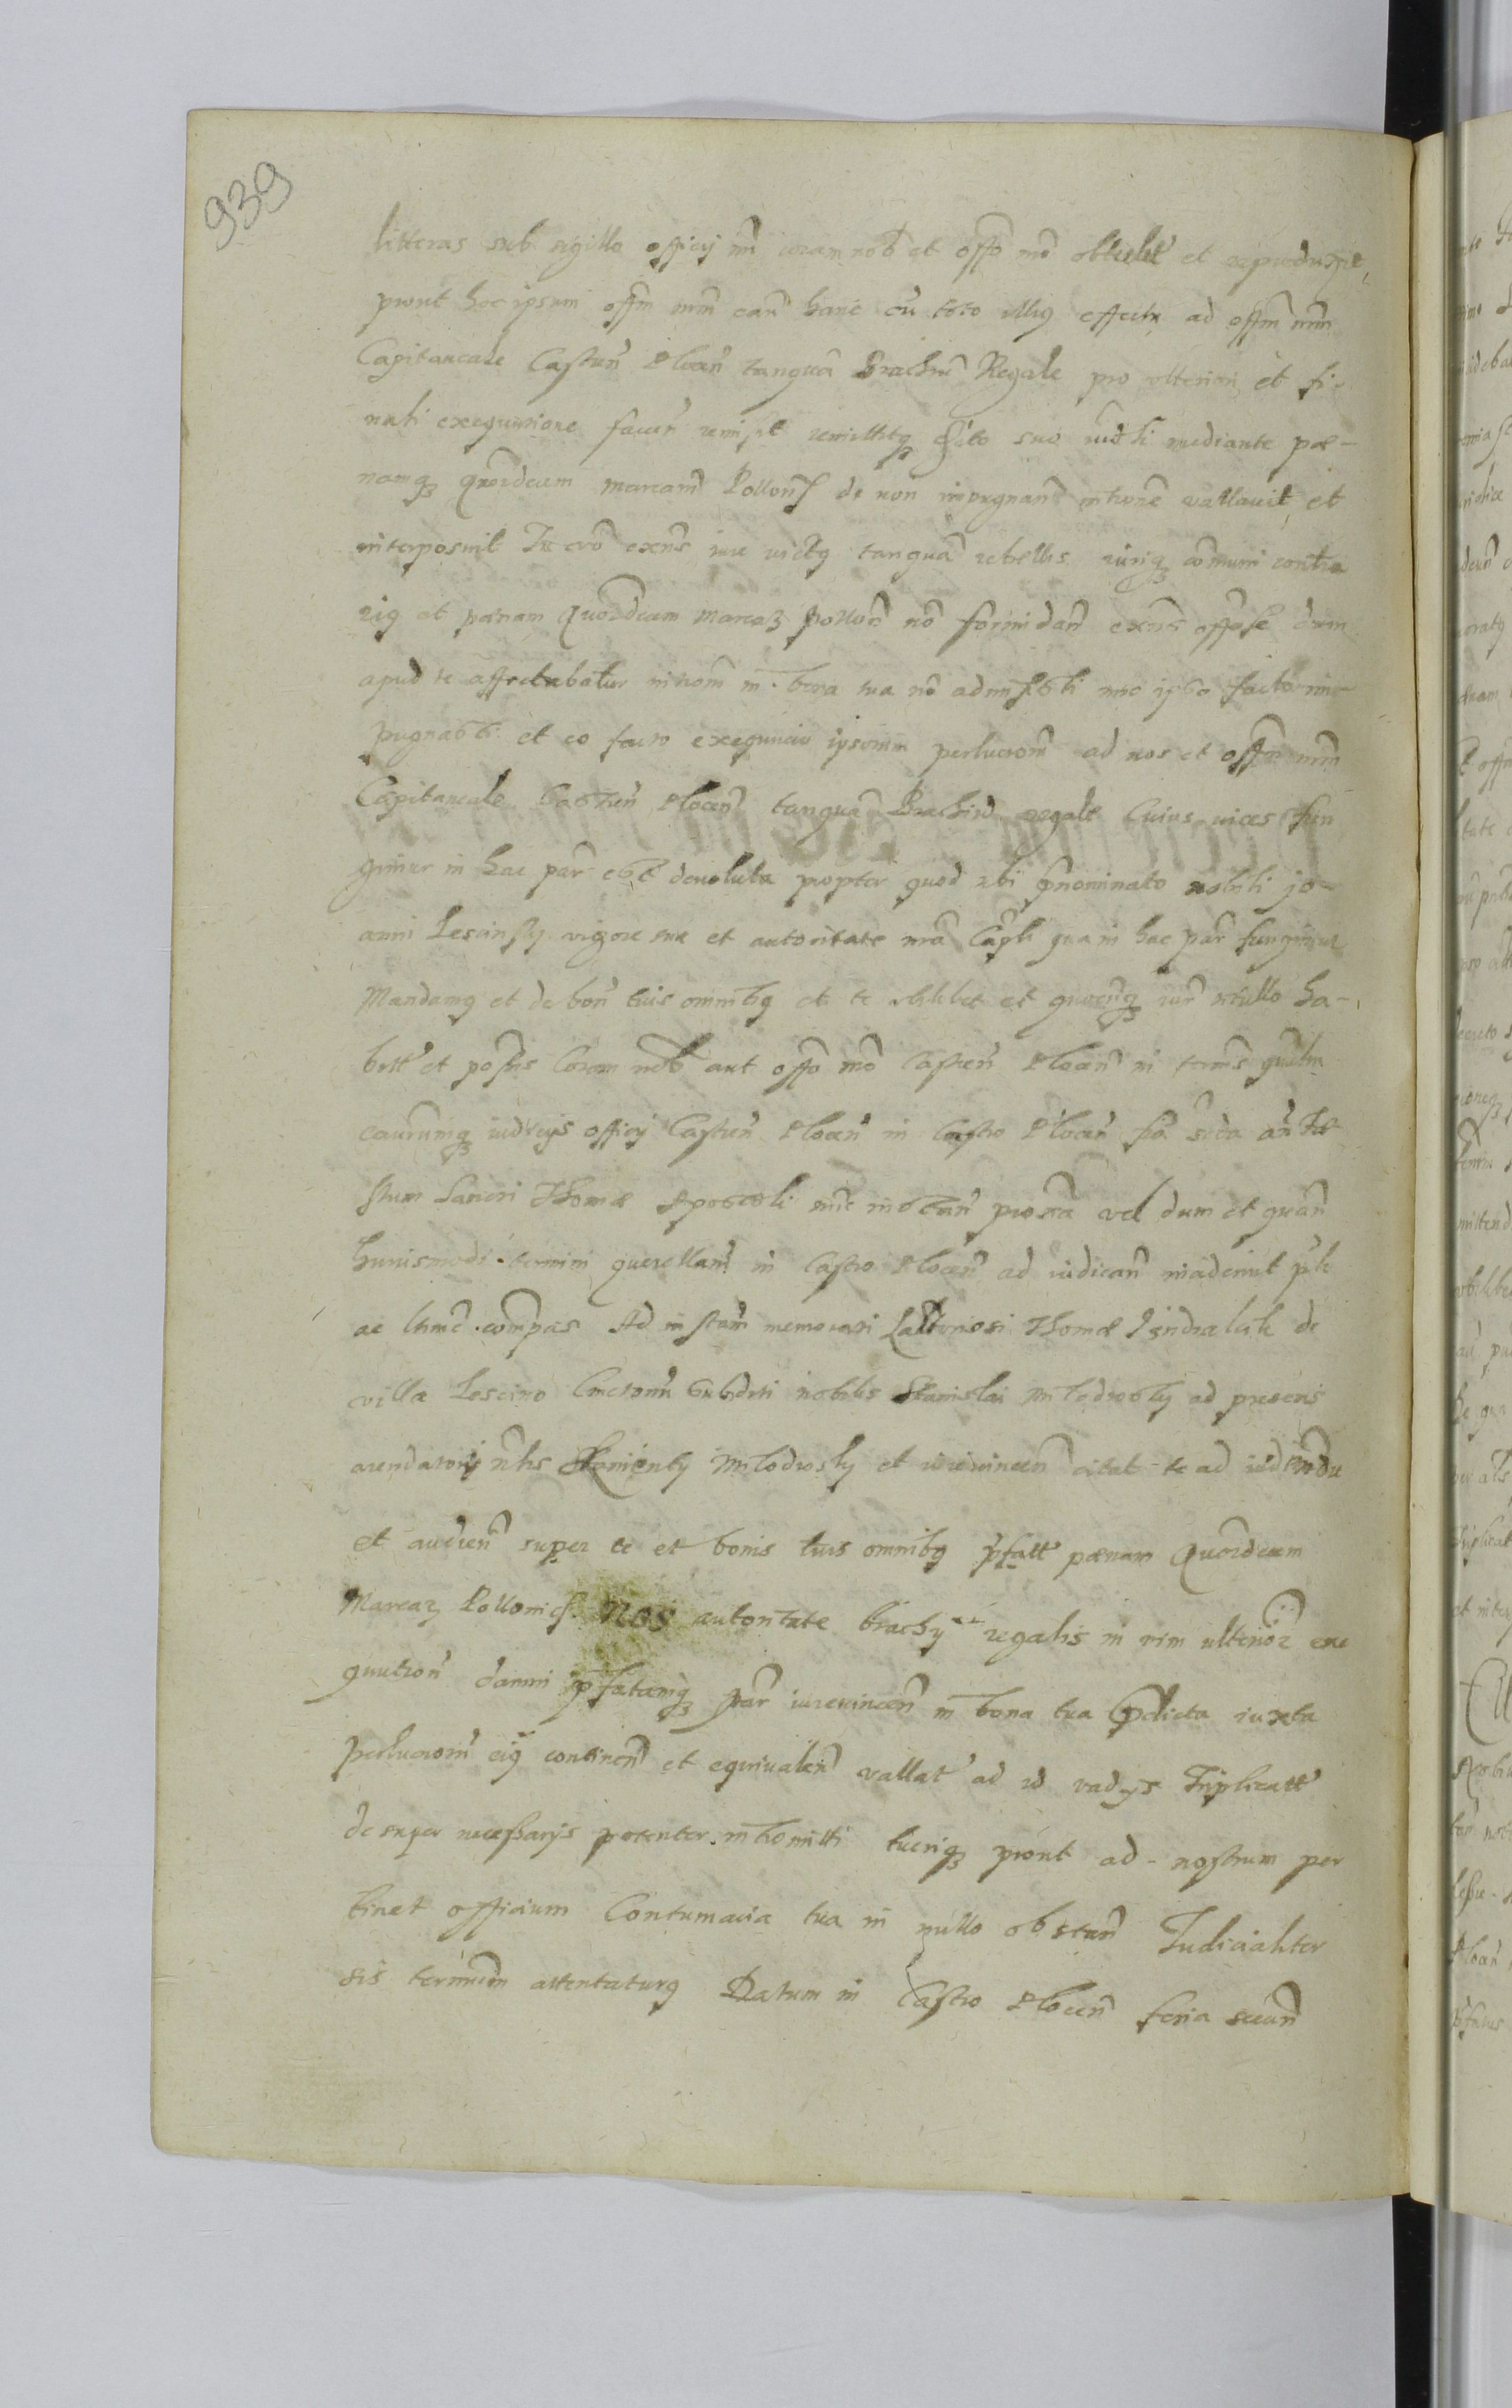 939
litteras sub sigillo officij nri coram nob et offo nro obtulit et reproduxit,
prout hoc ipsum offm nrm eam hanc cū toto illiq effectu ad offm nrm
Capitaneale Castren Plocen tanquā Brachiū Regale pro ulteriori et fi-
nali exequutione facien remisit remittitq suo mediante pæ-
namq Quordecim marcarū Pollon de non impugnan intrōne vallavit et
interposuit Tu erō exns iure victq tanquā rebellis iuriq cōmuni contra
riq et pænam Quordecim Marcaꝝ Pollon nō formidan exns dum
apud te affectabatur introm in bona tua nō admisisti imo ipso facto im-
pugnasti et eo facto exequucio ipsorum perlucrorm ad nos et offm nrm
Capitaneale Castren Plocen tanquā Brachiū regale Cuius vices fun
gimur in hac par est devoluta propter quod tibi p̄nominato nobili Jo-
anni Lescinsky vigore sue et autoritate nra Capli qua in hac par fungimur
Mandamq et de bon tuis omnibq et te obilibet et quocūq iur titullo ha-
bitt et possis Coram nob aut offo nro Castren Plocen in termis querlm
causrumq iudicys officij Castren Plocen in Castro Plocen fia scda an fæ-
stum Sancti Thomæ Apostoli nūc instan proxima vel dum et quan
huiusmodi termini querellarū in Castro Plocen ad iudican inciderint
ac ltime compas Ad instam memorati Laboriosi Thomæ Jindraluk de
villa Lescino Cmetonis Subditi nobilis Stanislai Mlodrosky ad presens
arendatoris nlis Mlodrosky et iurevincen citat te ad
et audien super te et bonis tuis omnibq pfatt pænam Quordecim
Marcaꝝ Pollonicꝭ. Nos autoritate brachy regalis in vim ulterior exe
qutionē damni pfatamq par iurevincen in bona tua p̄dicta iuxta
perlucrorm eiq continen et equivalen vallat ad id vadys Triplicatt
desuper necessarys potenter intromitti tueriq prout ad nostrum per
tinet officium Contumacia tua in nullo obstan Judicialiter
sis terminum attentaturq Datum in Castro Plocen feria secun